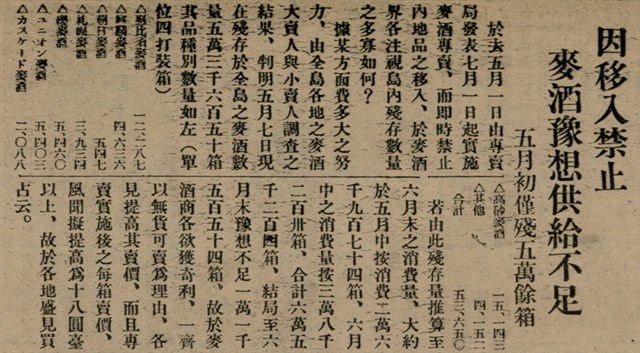 因移入禁止
麥酒豫想供給不足
五月初僅殘五萬餘箱
於去五月一日由專賣
局發表七月一日起實施
麥酒專賣、而即時禁止
內地品之移入、於麥酒
界各注視島內殘存數量
之多寡如何？
據某方面費多大之努
力、由全島各地之麥酒
大賣人與小賣人調查之
結果、判明五月七日現
在殘存於全島之麥酒數
量五萬三千六百五十箱
其品種別數量如左（單
位四打裝箱）
△惠比須麥酒 一二、二八七
△麒麟麥酒 四、六三六
△朝日麥酒 五四七
△札幌麥酒 三、九三四
△櫻麥酒 五、四六〇
△ユニオン麥酒 五、四〇三
△カスケード麥酒 二、〇八八
△高砂麥酒 一五、一四三
△其他 四、一五二
合計 五三、六五〇
若由此殘存量推算至
六月末之消費量、大約
於五月中按消費二萬六
千九百七十四箱、六月
中之消費量按三萬八千
二百卅箱、合計六萬五
千二百四箱、結局至六
月末豫想不足一萬一千
五百五十四箱、故於麥
酒商各欲獲奇利、一齊
以無貨可賣爲理由、各
見提高其賣價、而且專
賣實施後之每箱賣價、
風聞擬提高爲十八圓臺
以上、故於各地盛見買
占云。